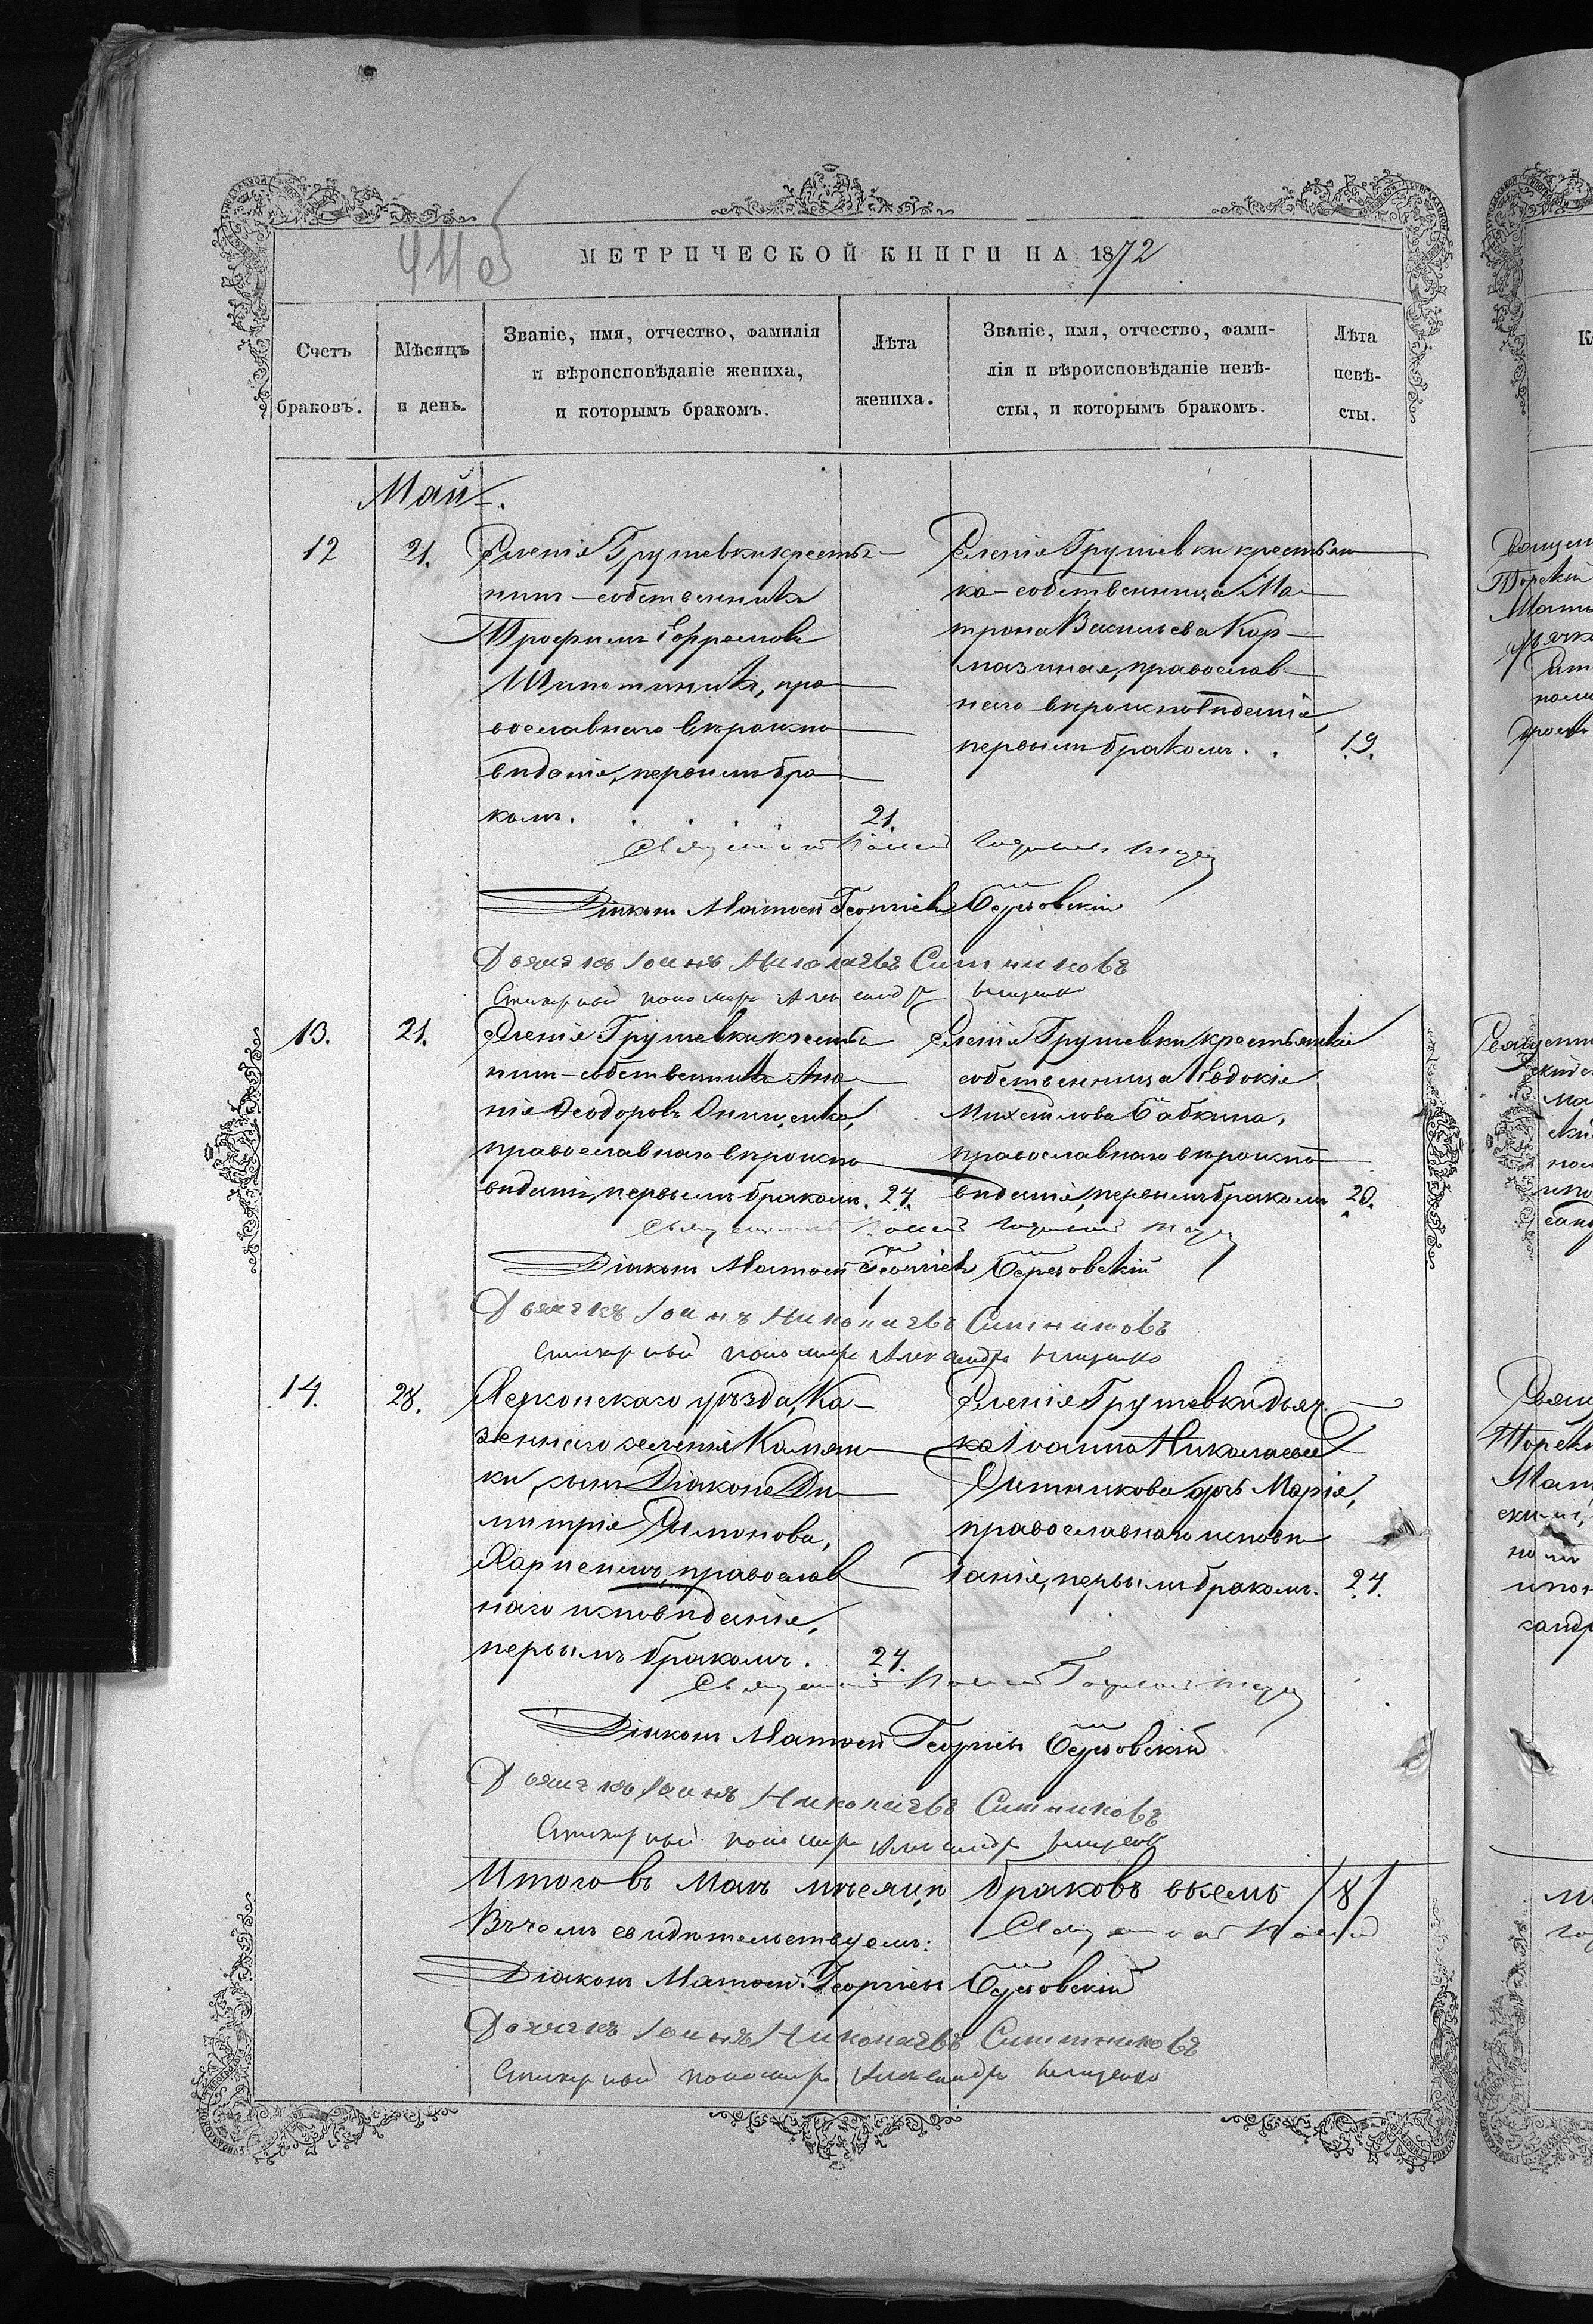 411 об
МЕТРИЧЕСКОЙ КНИГИ НА 1872
Счетъ
браковъ.
Мѣсяцъ
и день.
Званіе, имя, отчество, фамилія
и вѣроисповѣданіе жениха,
и которымъ бракомъ.
Лѣта
жениха.
Званіе, имя, отчество, фами-
лія и вѣроисповѣданіе невѣ-
сты, и которымъ бракомъ.
Лѣта
невѣ-
сты.
Май.
12
21.
Селенія Грушевки крестья-
нинъ-собственникъ
Трофимъ Ефремовъ
пра-
вославнаго вѣроиспо-
вѣданія, первымъ бра-
комъ.
21.
Селенія Грушевки крестьян-
ка-собственница Ма-
трона Васильева Кар-
мазиная, православ-
наго вѣроисповѣданія,
первымъ бракомъ.
19.
Священникъ
Діаконъ Матвей Георгіевъ Березовскій
Дьячекъ Іоанъ Николаевъ Ситниковъ
пономарь Александръ
13.
21.
Селенія Грушевки крестья-
нинъ-собственникъ Ана-
нія Ѳеодоровъ Онищенко,
православнаго вѣроиспо-
вѣданія, первымъ бракомъ.
24.
Селенія Грушевки крестьянка
собственница Евдокія
Михайлова Бабкина,
православнаго вѣроиспо-
вѣданія, первымъ бракомъ
20.
Священникъ
Діаконъ Матвей Георгіевъ Березовскій
Дьячекъ Іоанъ Николаевъ Ситниковъ
пономарь Александръ
14.
28.
Херсонскаго уѣзда, Ка-
зеннаго селенія Камян-
ки, сынъ Діакона Ди-
митрія Симонова,
православ-
наго исповѣданія,
первымъ бракомъ.
24.
Селенія Грушевки дьяч-
ка Іоанна Николаева
Ситникова дочь Марія,
православнаго исповѣ-
данія, первымъ бракомъ.
24.
Священникъ
Діаконъ Матвей Георгіевъ Березовскій
Дьячекъ Іоанъ Николаевъ Ситниковъ
пономарь Александръ
Итого въ Маѣ мѣсяцѣ браковъ восемь /8/
Въ чемъ свидѣтельствуемъ: Священникъ
Діаконъ Матвей Георгіевъ Березовскій
Дьячекъ Іоанъ Николаевъ Ситниковъ
пономарь Александръ